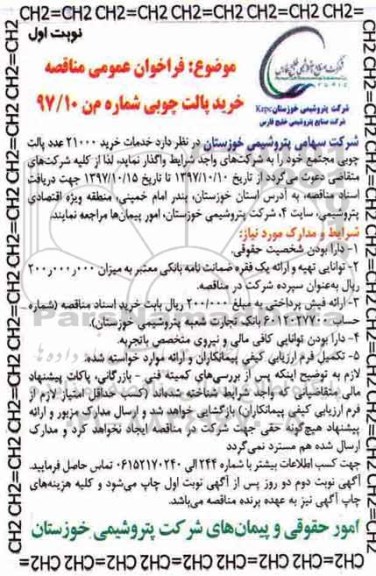 نوبت اول
موضوع: فراخوان عمومی مناقصه
خرید پالت چوبی شماره م‌ن ۹۷/۱۰
شرکت پتروشیمی خوزستان Kzpc
شرکت صنایع پتروشیمی خلیج فارس
شرکت سهامی پتروشیمی خوزستان در نظر دارد خدمات خرید ۲۱۰۰۰ عدد پالت
چوبی مجتمع خود را به شرکت‌های واجد شرایط واگذار نماید، لذا از کلیه شرکت‌های
متقاضی دعوت می‌گردد از تاریخ ۱۳۹۷/۱۰/۱۰ تا تاریخ ۱۳۹۷/۱۰/۱۵ جهت دریافت
اسناد مناقصه، به آدرس استان خوزستان، بندر امام خمینی، منطقه ویژه اقتصادی
پتروشیمی، سایت ۴، شرکت پتروشیمی خوزستان، امور پیمان‌ها مراجعه نمایند.
شرایط و مدارک مورد نیاز:
۱- دارا بودن شخصیت حقوقی.
۲- توانایی تهیه و ارائه یک فقره ضمانت نامه بانکی معتبر به میزان ۲۰۰ر۰۰۰ر۰۰۰
ریال به‌عنوان سپرده شرکت در مناقصه.
۳- ارائه فیش پرداختی به مبلغ ۲۰۰/۰۰۰ ریال بابت خرید اسناد مناقصه (شماره
حساب ۶۰۱۲۰۲۷۷۰۰ بانک تجارت شعبه پتروشیمی خوزستان).
۴- دارا بودن توانایی کافی مالی و نیروی متخصص باتجربه.
۵- تکمیل فرم ارزیابی کیفی پیمانکاران و ارائه موارد خواسته شده.
لازم به توضیح اینکه پس از بررسی‌های کمیته فنی - بازرگانی، پاکات پیشنهاد
مالی متقاضیانی که واجد شرایط شناخته شده‌اند (کسب حداقل امتیاز لازم از
فرم ارزیابی کیفی پیمانکاران) بازگشایی خواهد شد و ارسال مدارک مزبور و ارائه
پیشنهاد هیچ‌گونه حقی جهت شرکت در مناقصه ایجاد نخواهد کرد و مدارک
ارسال شده هم مسترد نمی‌گردد
جهت کسب اطلاعات بیشتر با شماره ۲۴۴ الی ۰۶۱۵۲۱۷۰۲۴۰ تماس حاصل فرمایید.
آگهی نوبت دوم دو روز پس از آگهی نوبت اول چاپ می‌شود و کلیه هزینه‌های
چاپ آگهی نیز به عهده برنده مناقصه می‌باشد.
امور حقوقی و پیمان‌های شرکت پتروشیمی خوزستان